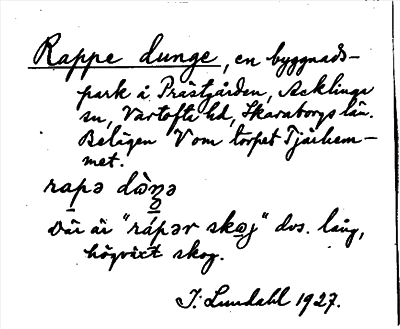 Rappe dunge, en byggnads-
park å Prästgården, Acklinga
sn, Vartofta hd, Skaraborgs län.
Belägen V om torpet Tjärhem-
met.
rapə
Där är "rápər skɷj" dvs. lång,
högväxt skog.
J. Lundahl 1927.